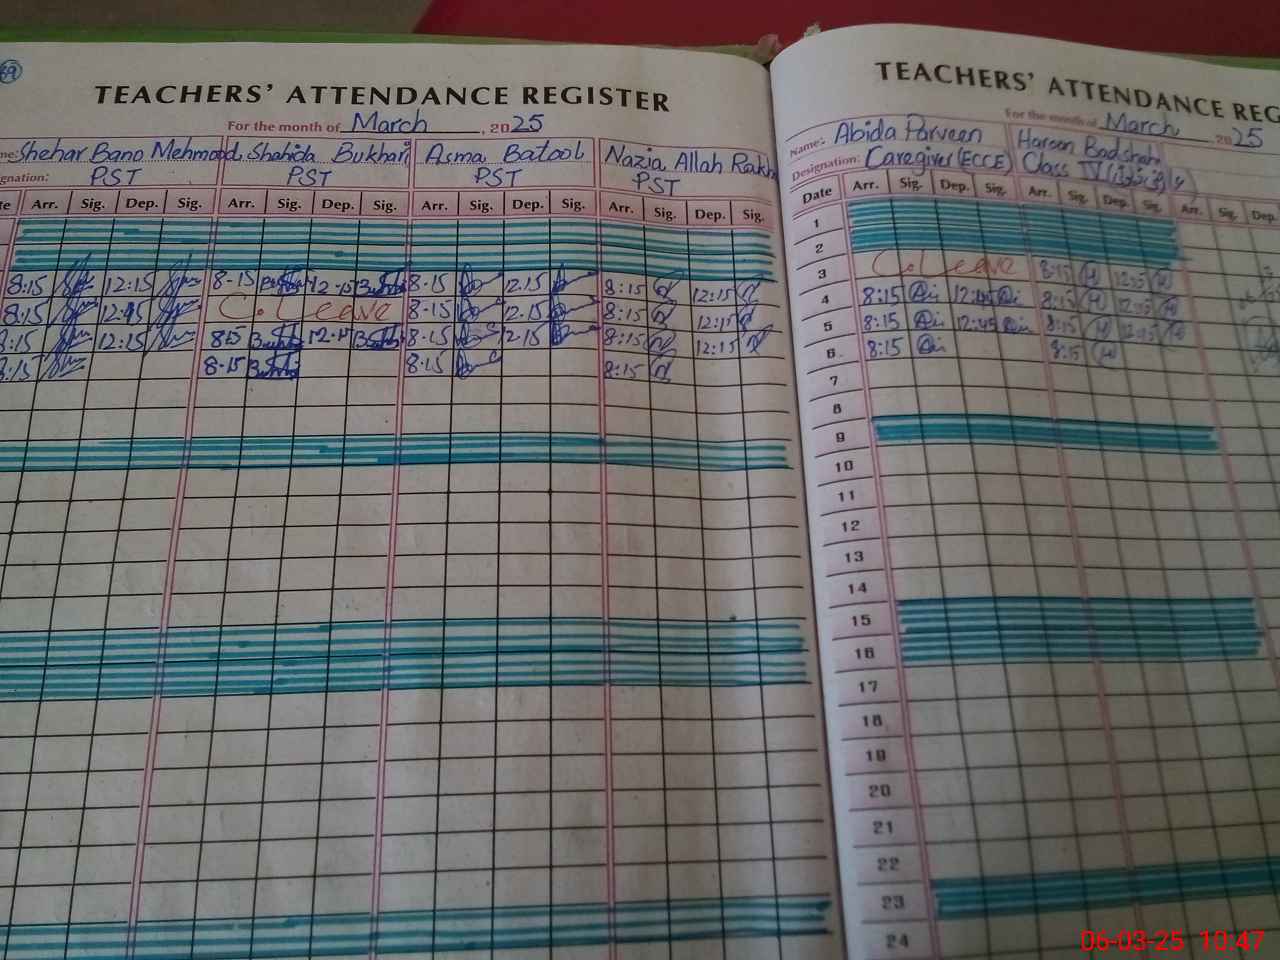 39
TEACHERS' ATTENDANCE REGISTER
For the month of March, 2025
me: Shehar Bano Mehmood Shahida Bukhari Asma Batool Nazia Allah Rakh
gnation: PST PST PST PST
te Arr. Sig. Dep. Sig. Arr. Sig. Dep. Sig. Arr. Sig. Dep. Sig. Arr. Sig. Dep. Sig.
8:15 12:15 8-15 12-15 8-15 12.15 8:15 12:15
8:15 12:15 C. Leave 8-15 12.15 8:15 12:15
8:15 12:15 815 8-15 12.15 8:15 12:15
8:15 8-15 8-15 8:15
TEACHERS' ATTENDANCE REG
For the month of March 2025
Name: Abida Parveen Haroon Badshah
Designation: Caregiver (ECCE) Class IV
Date Arr. Sig. Dep. Sig. Arr. Sig. Dep. Sig. Arr. Sig. Dep.
1
2
3 C. Leave 8:15
4 8:15 12:45 8:15
5 8:15 12:45 8:15
6 8:15 8:15
7
8
9
10
11
12
13
14
15
16
17
18
19
20
21
22
23
24
06-03-25 10:47